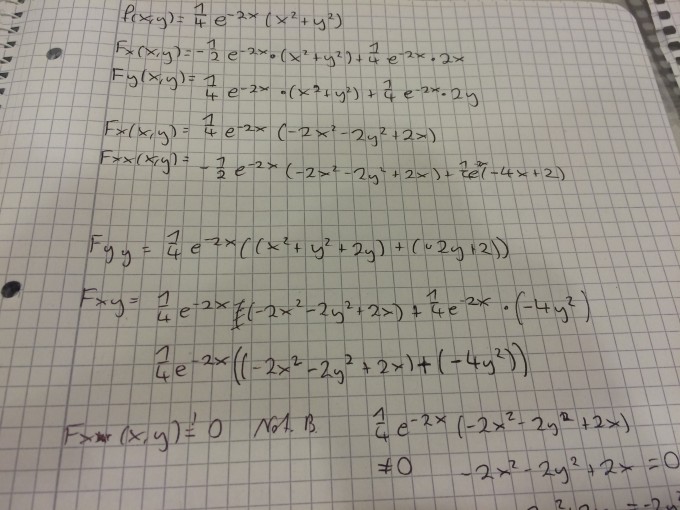 f(x,y) = 1/4 e^-2x (x² + y²)
Fx(x,y) = -1/2 e^-2x · (x² + y²) + 1/4 e^-2x · 2x
Fy(x,y) = 1/4 e^-2x · (x² + y²) + 1/4 e^-2x · 2y
Fx(x,y) = 1/4 e^-2x (-2x² - 2y² + 2x)
Fxx(x,y) = -1/2 e^-2x (-2x² - 2y² + 2x) + (-4x + 2)
Fyy = 1/4 e^-2x ((x² + y² + 2y) + (2y + 2))
Fxy = 1/4 e^-2x (-2x² - 2y² + 2x) + 1/4 e^-2x · (-4y²)
1/4 e^-2x ((-2x² - 2y² + 2x) + (-4y²))
Fx (x,y) = 0 Not. B. 1/4 e^-2x (-2x² - 2y² + 2x)
≠0 -2x² - 2y² + 2x = 0